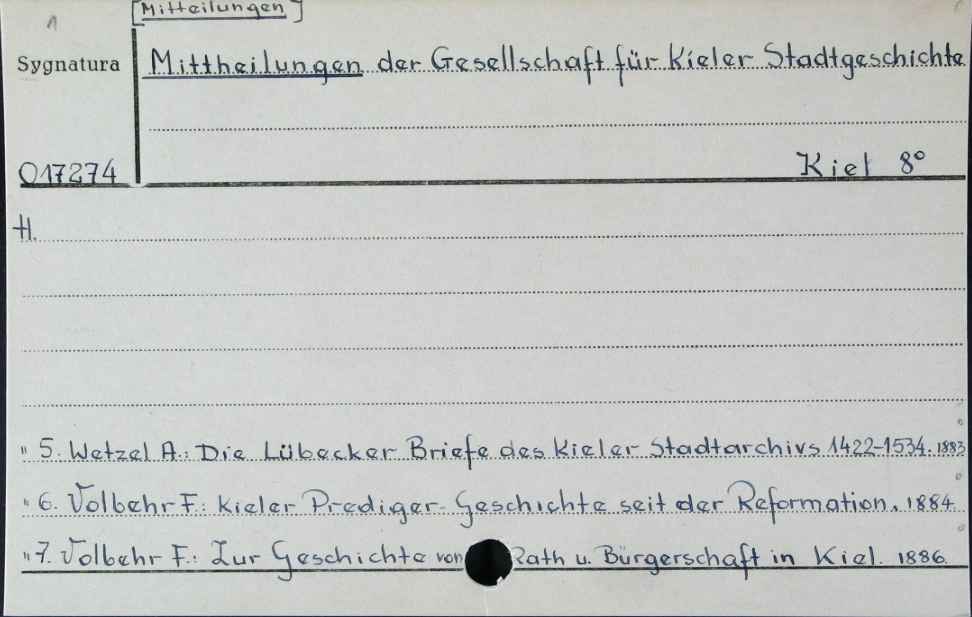 1 [Mitteilungen]
Sygnatura Mittheilungen der Gesellschaft für Kieler Stadtgeschichte
017274 Kiel 8°
H.
" 5. Wetzel A.: Die Lübecker Briefe des Kieler Stadtarchivs 1422-1534. 1883
" 6. Volbehr F.: Kieler Prediger-Geschichte seit der Reformation. 1884.
" 7. Volbehr F.: Zur Geschichte von Rath u. Bürgerschaft in Kiel. 1886.